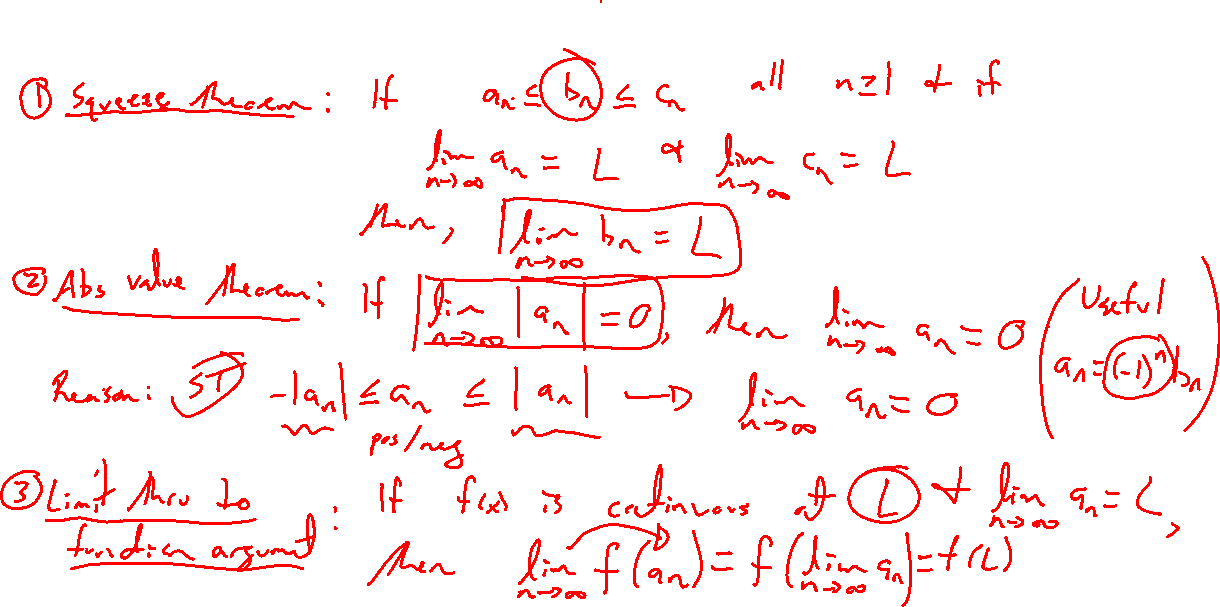 ① Squeeze theorem: If aₙ ≤ bₙ ≤ cₙ all n ≥ 1 & if
lim n→∞ aₙ = L & lim n→∞ cₙ = L
then, lim n→∞ bₙ = L
② Abs value theorem: If lim n→∞ |aₙ| = 0, then lim n→∞ aₙ = 0 (Useful aₙ = (-1)ⁿ bₙ)
Reason: ST -|aₙ| ≤ aₙ ≤ |aₙ| → lim n→∞ aₙ = 0
pos/neg
③ Limit thru to function argument: If f(x) is continuous at L & lim n→∞ aₙ = L,
then lim n→∞ f(aₙ) = f(lim n→∞ aₙ) = f(L)